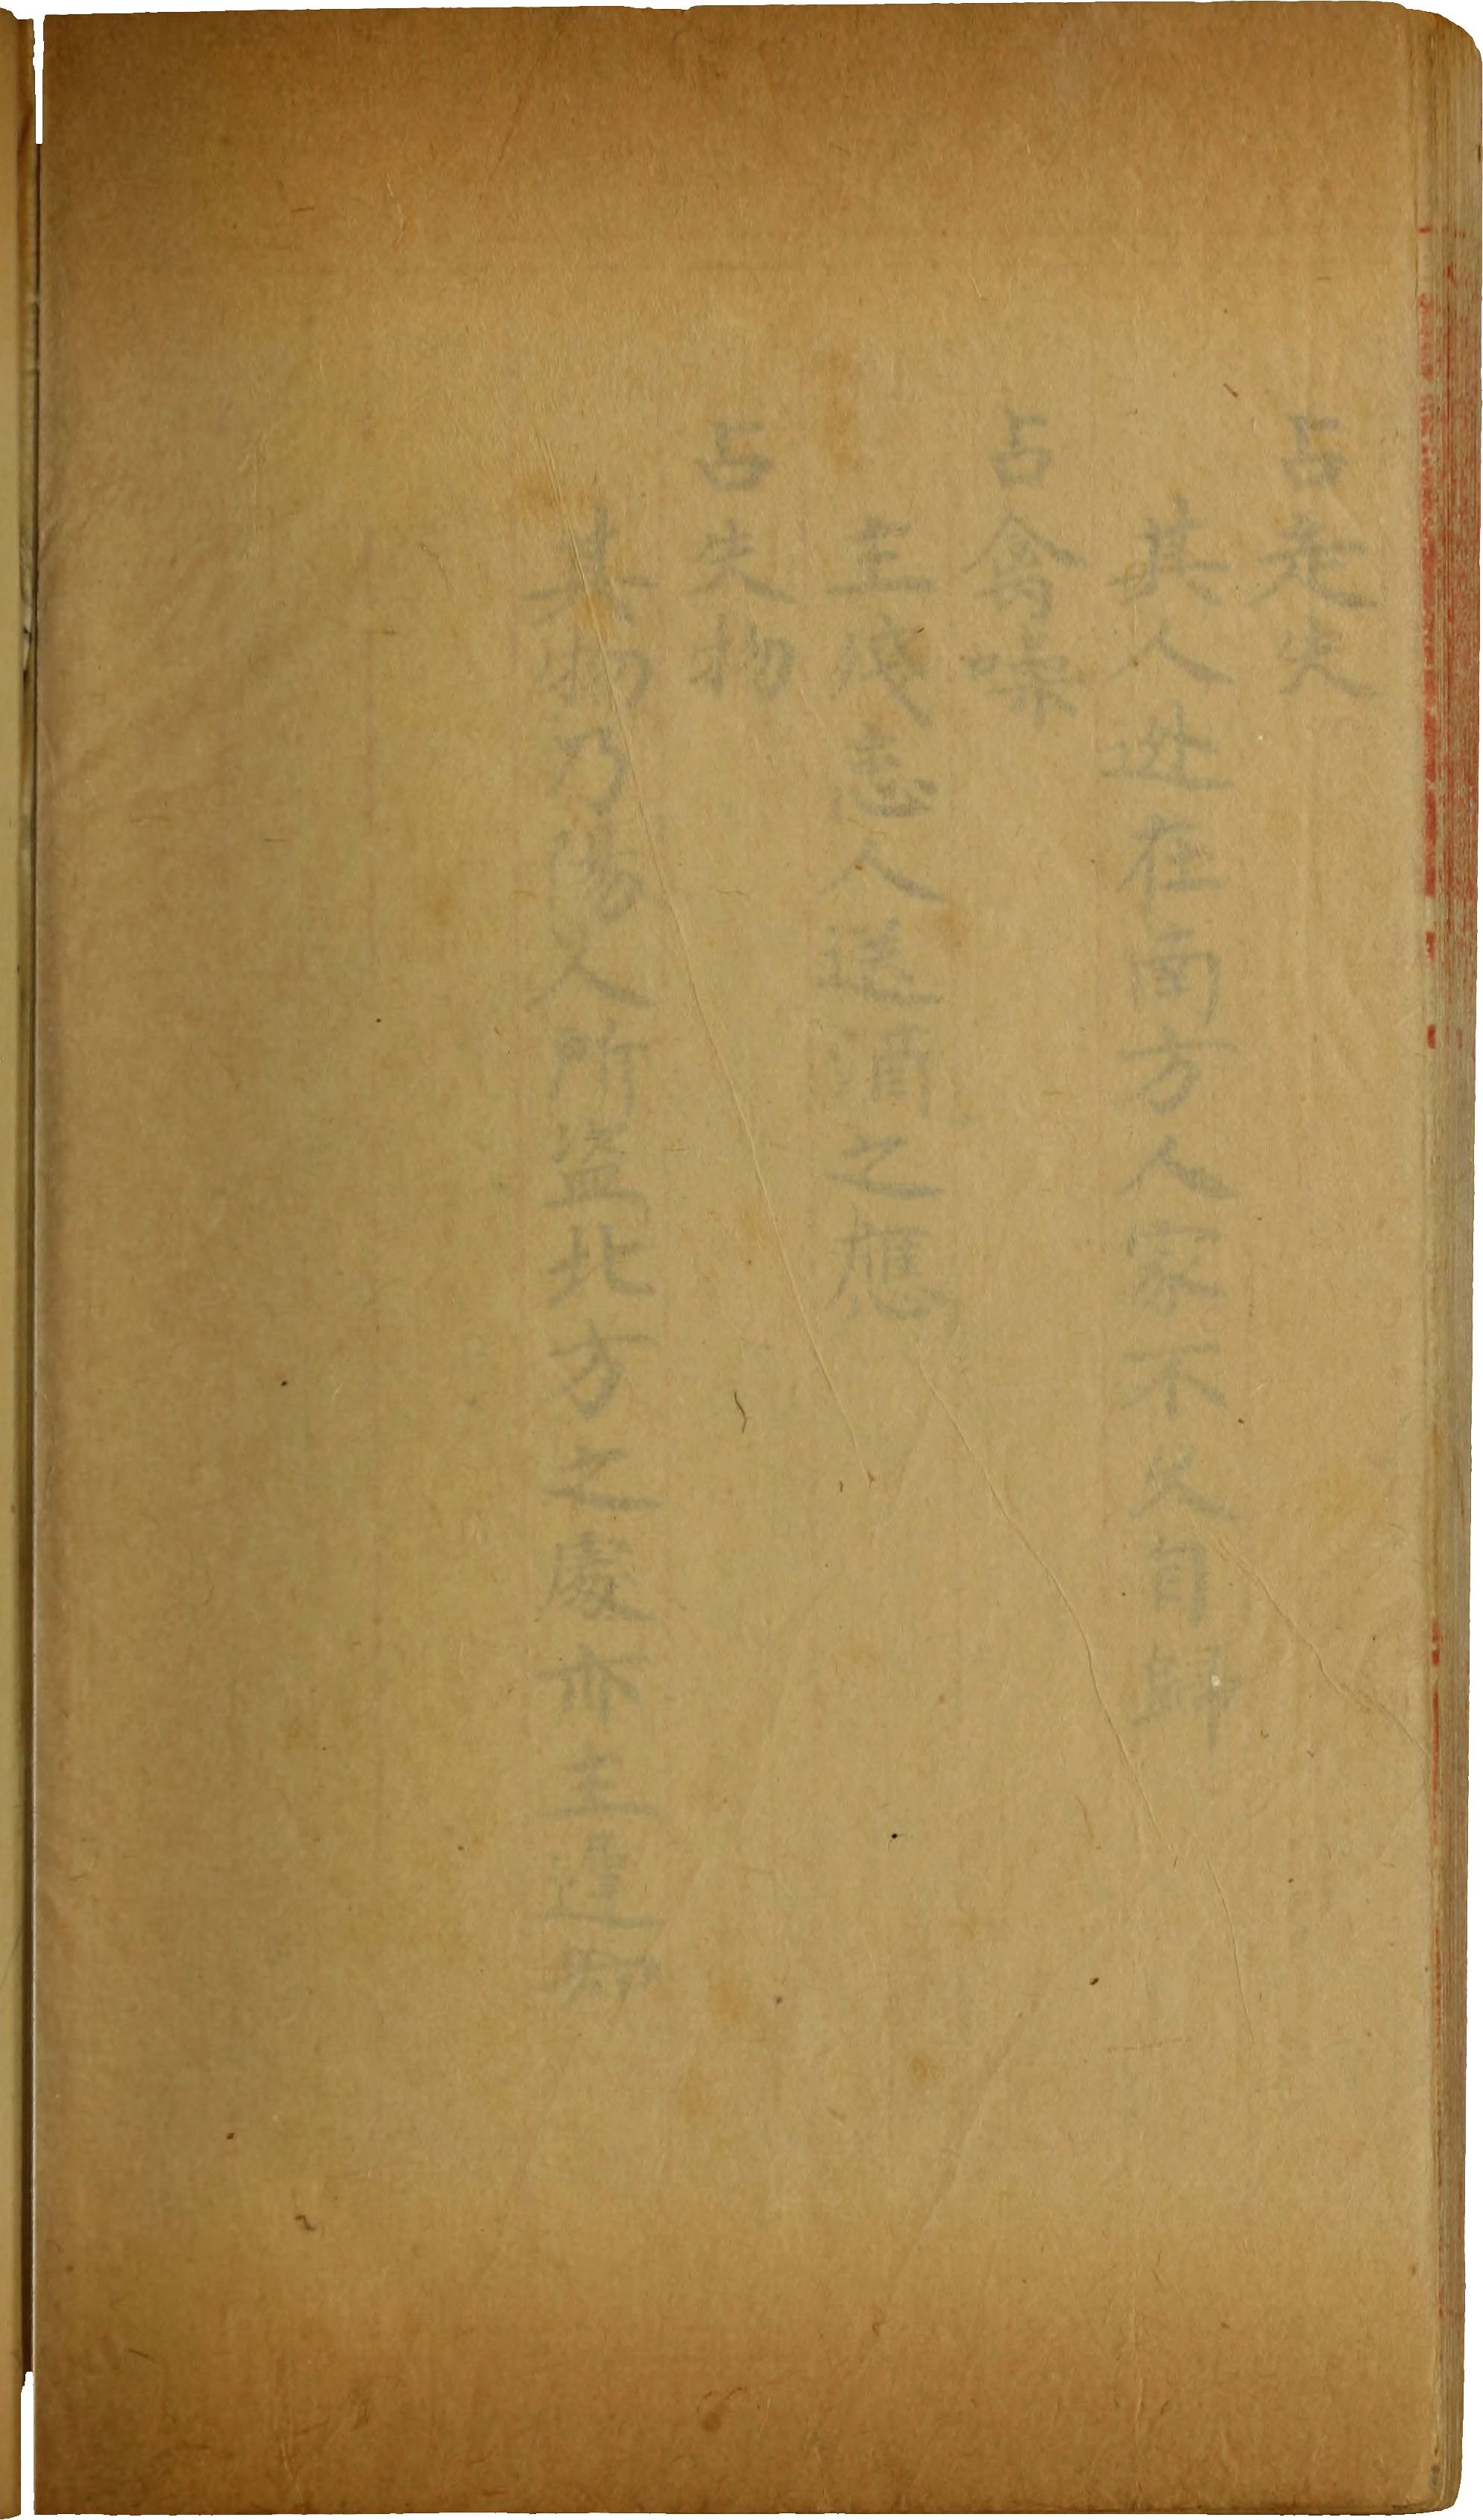 占走失
其人逃在南方人家不久自歸
占禽噪
主殘患人送酒之應
占失物
其物乃陽人所盜北方之處亦主進